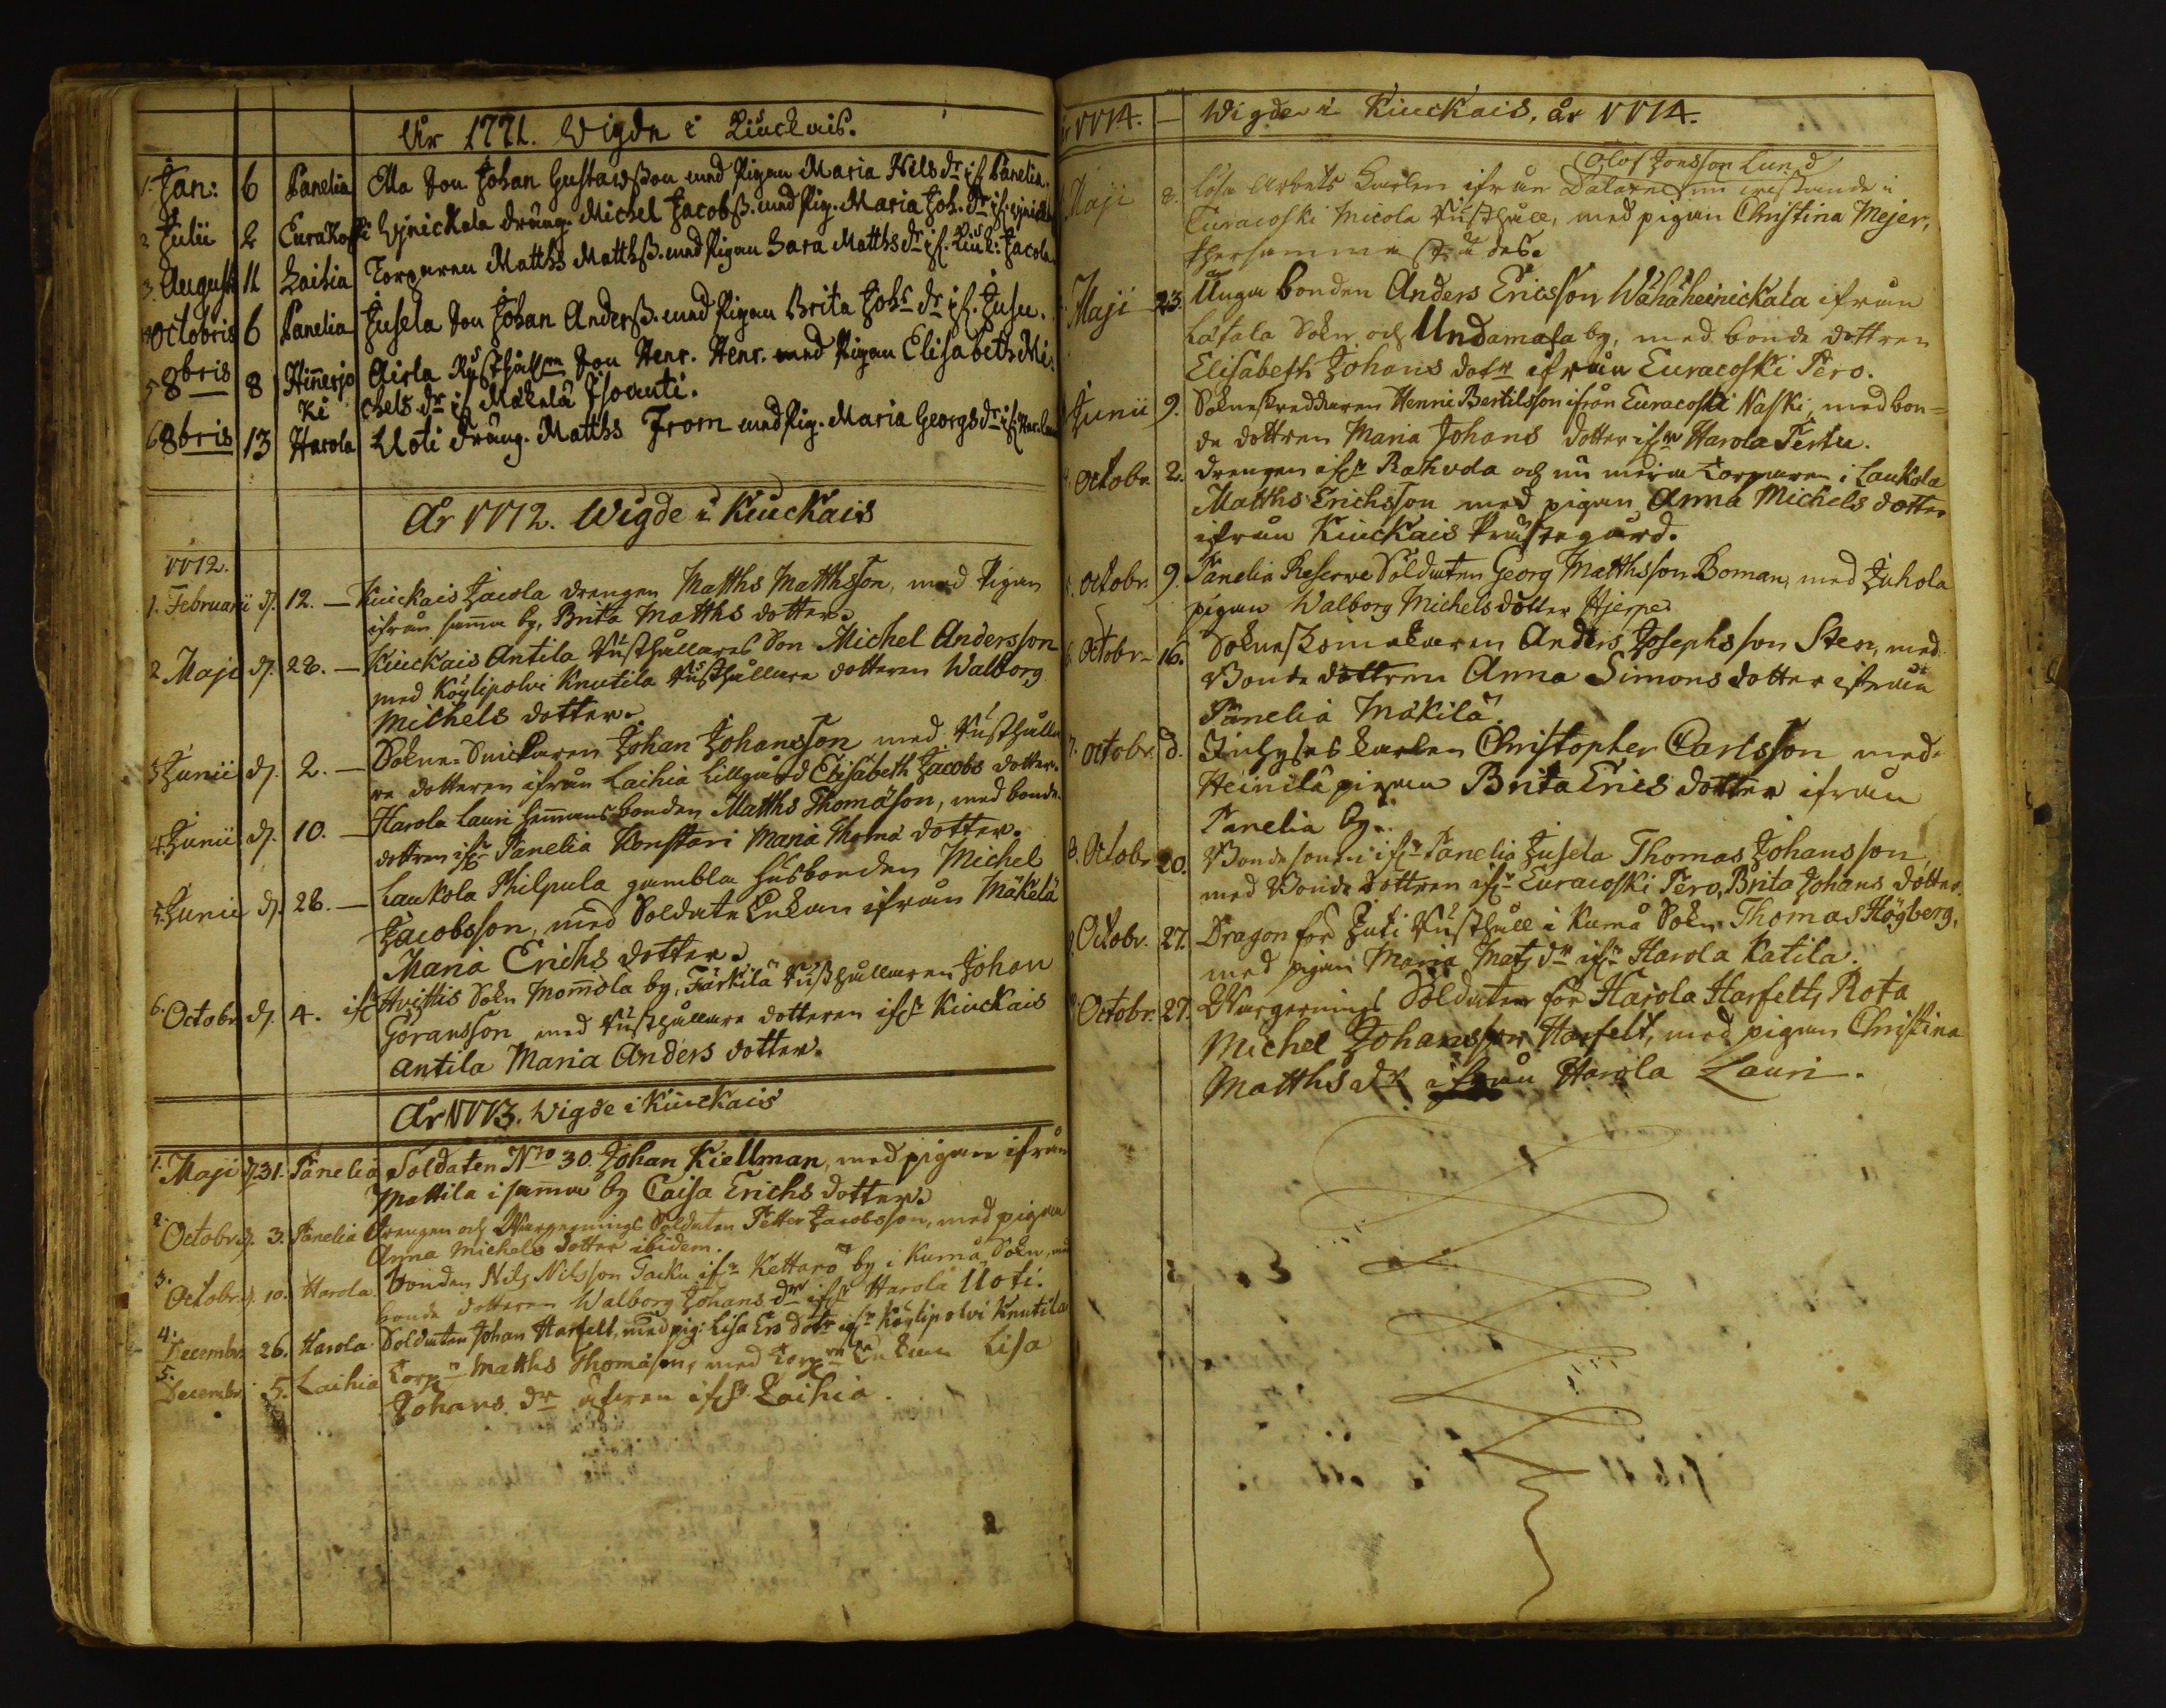 År 1771. Wigde i Kiuckais.
1. Jan: 6 Panelia Ala Son Johan Gustavsson med Pigan Maria Nels dr if. Panelia.
2 Julii 2 Eurakoski Ujnickala dräng. Michel Jacobss. med Pig. Maria Joh. dr if.
3. August 11 Laihia Torparen Matths Matthss. med Pigan Sara Matths dr if. Kiuk: Jacola.
4 Octobris 6 Panelia Jusela Son Johan Anderss. med Pigan Brita Johs dr if. Juse.
5 8bris 8 Hinnerjo Airla Rusthåll Son Henr. Henr. med Pigan Elisabeth Mi-
ki chels dr if Mäkelä Isoanti.
6 8bris 13 Harola Uoti dräng. Matths From med Pig. Maria Georgs dr if. Har.
År 1772. Wigde i Kiuckais
1772.
1. Februarii d. 12. — Kiuckais Jacola drengen Matths Matthsson, med Pigan
ifrån samma by, Brita Matths dotter.
2 Maji d. 28. — Kiuckais Antila Rusthållares Son Michel Andersson
med Köylipolvi Knutila Rusthållare dotteren Walborg
Michels dotter.
3 Junii d. 2. — Sokne-Snickaren Johan Johansson med Rusthålla
re dotteren ifrån Laihia Lillgård Elisabeth Jacobs dotter.
4. Junii d. 10. — Harola Lauri hemmans bonden Matths Thomäson, med bonde
dottren ifr Panelia Konstari Maria Thomä dotter.
5 Junii d. 28. — Laukola Philpula gambla husbonden Michel
Jacobsson, med Soldate Enkan ifrån Mäkelä
Maria Erichs dotter.
6. Octobr d. 4. ifr Hvittis Sokn Mommola by, Färkilä Rusthållaren Johan
Göransson med Rusthållare dotteren ifr Kiuckais
Antila Maria Anders dotter.
År 1773. Wigde i Kiuckais
1. Maji d. 31. Panelia Soldaten Nro 30. Johan Kiellman, med pigan ifrån
Mattila i samma by Caisa Erichs dotter.
2. Octobr d. 3. Panelia drengen och Wargerings Soldaten Petter Jacobsson, med pigan
Anna Michels dotter ibidem.
3. Octobr. d. 10. Harola. bonden Nils Nilsson Tacku ifr Kettaro by i Kumå Sokn, med
bonde dotteren Walborg Johans dr ifr Harola Uoti.
4. Decembr. 26. Harola Soldaten Johan Harfelt, med pig: Lisa Ers dotr ifr Köylipolvi Knutila
5. Decembr 5. Laihia Torpn Matths Thomäson, med Torpre Enkan Lisa
Johans dr äfven ifr Laihia.
1774. — Wigde i Kiuckais, år 1774.
Olof Jonsson Lund
Maji 8. Löse Arbets Karlen ifrån Dalarne nu vistande i
Euracoski Micola Rusthåll, med pigan Christina Mejer,
thersammastädes.
Maji 23. Unga bonden Anders Ericsson Wähäheinickala ifrån
Lafala Sokn och Undamala by, med bonde dottren
Elisabeth Johans dotr ifrån Euracoski Pero.
Junii 9. Sokneskreddaren Henric Bertilsson ifrån Euracoski Naski, med bon=
de dottren Maria Johans dotter ifr Harola Pertu.
Octobr. 2. drengen ifr Rahvola och nu mera Torparen i Laukola
Matths Erichsson med pigan Anna Michels dotter
ifrån Kiuckais Prästegård.
Octobr. 9. Panelia Reserve Soldaten Georg Matthsson Boman, med Juhola
pigan Walborg Michels dotter Hjerpe.
6. Octobr. 16. Sokneskomakaren Anders Josephsson Sten, med
Bonde dottren Anna Simons dotter ifrån
Panelia Mäkilä.
7. Octobr. d. Inhyses karlen Christopher Carlsson med
Heinilä pigan Brita Erics dotter ifrån
Panelia by.
8. Octobr 20. Bondesonen ifr Panelia Jusela Thomas Johansson,
med Bonde dottren ifr Euracoski Pero, Brita Johans dotter.
9 Octobr. 27. Dragon för Juti Rusthåll i Kumå Sokn Thomas Högberg,
med pigan Maria Mats dr ifr Harola Katila.
Octobr. 27. Wargerings Soldaten för Harola Harfelts Rota
Michel Johansson Harfelt, med pigan Christina
Matths dr ifrån Harola Lauri.